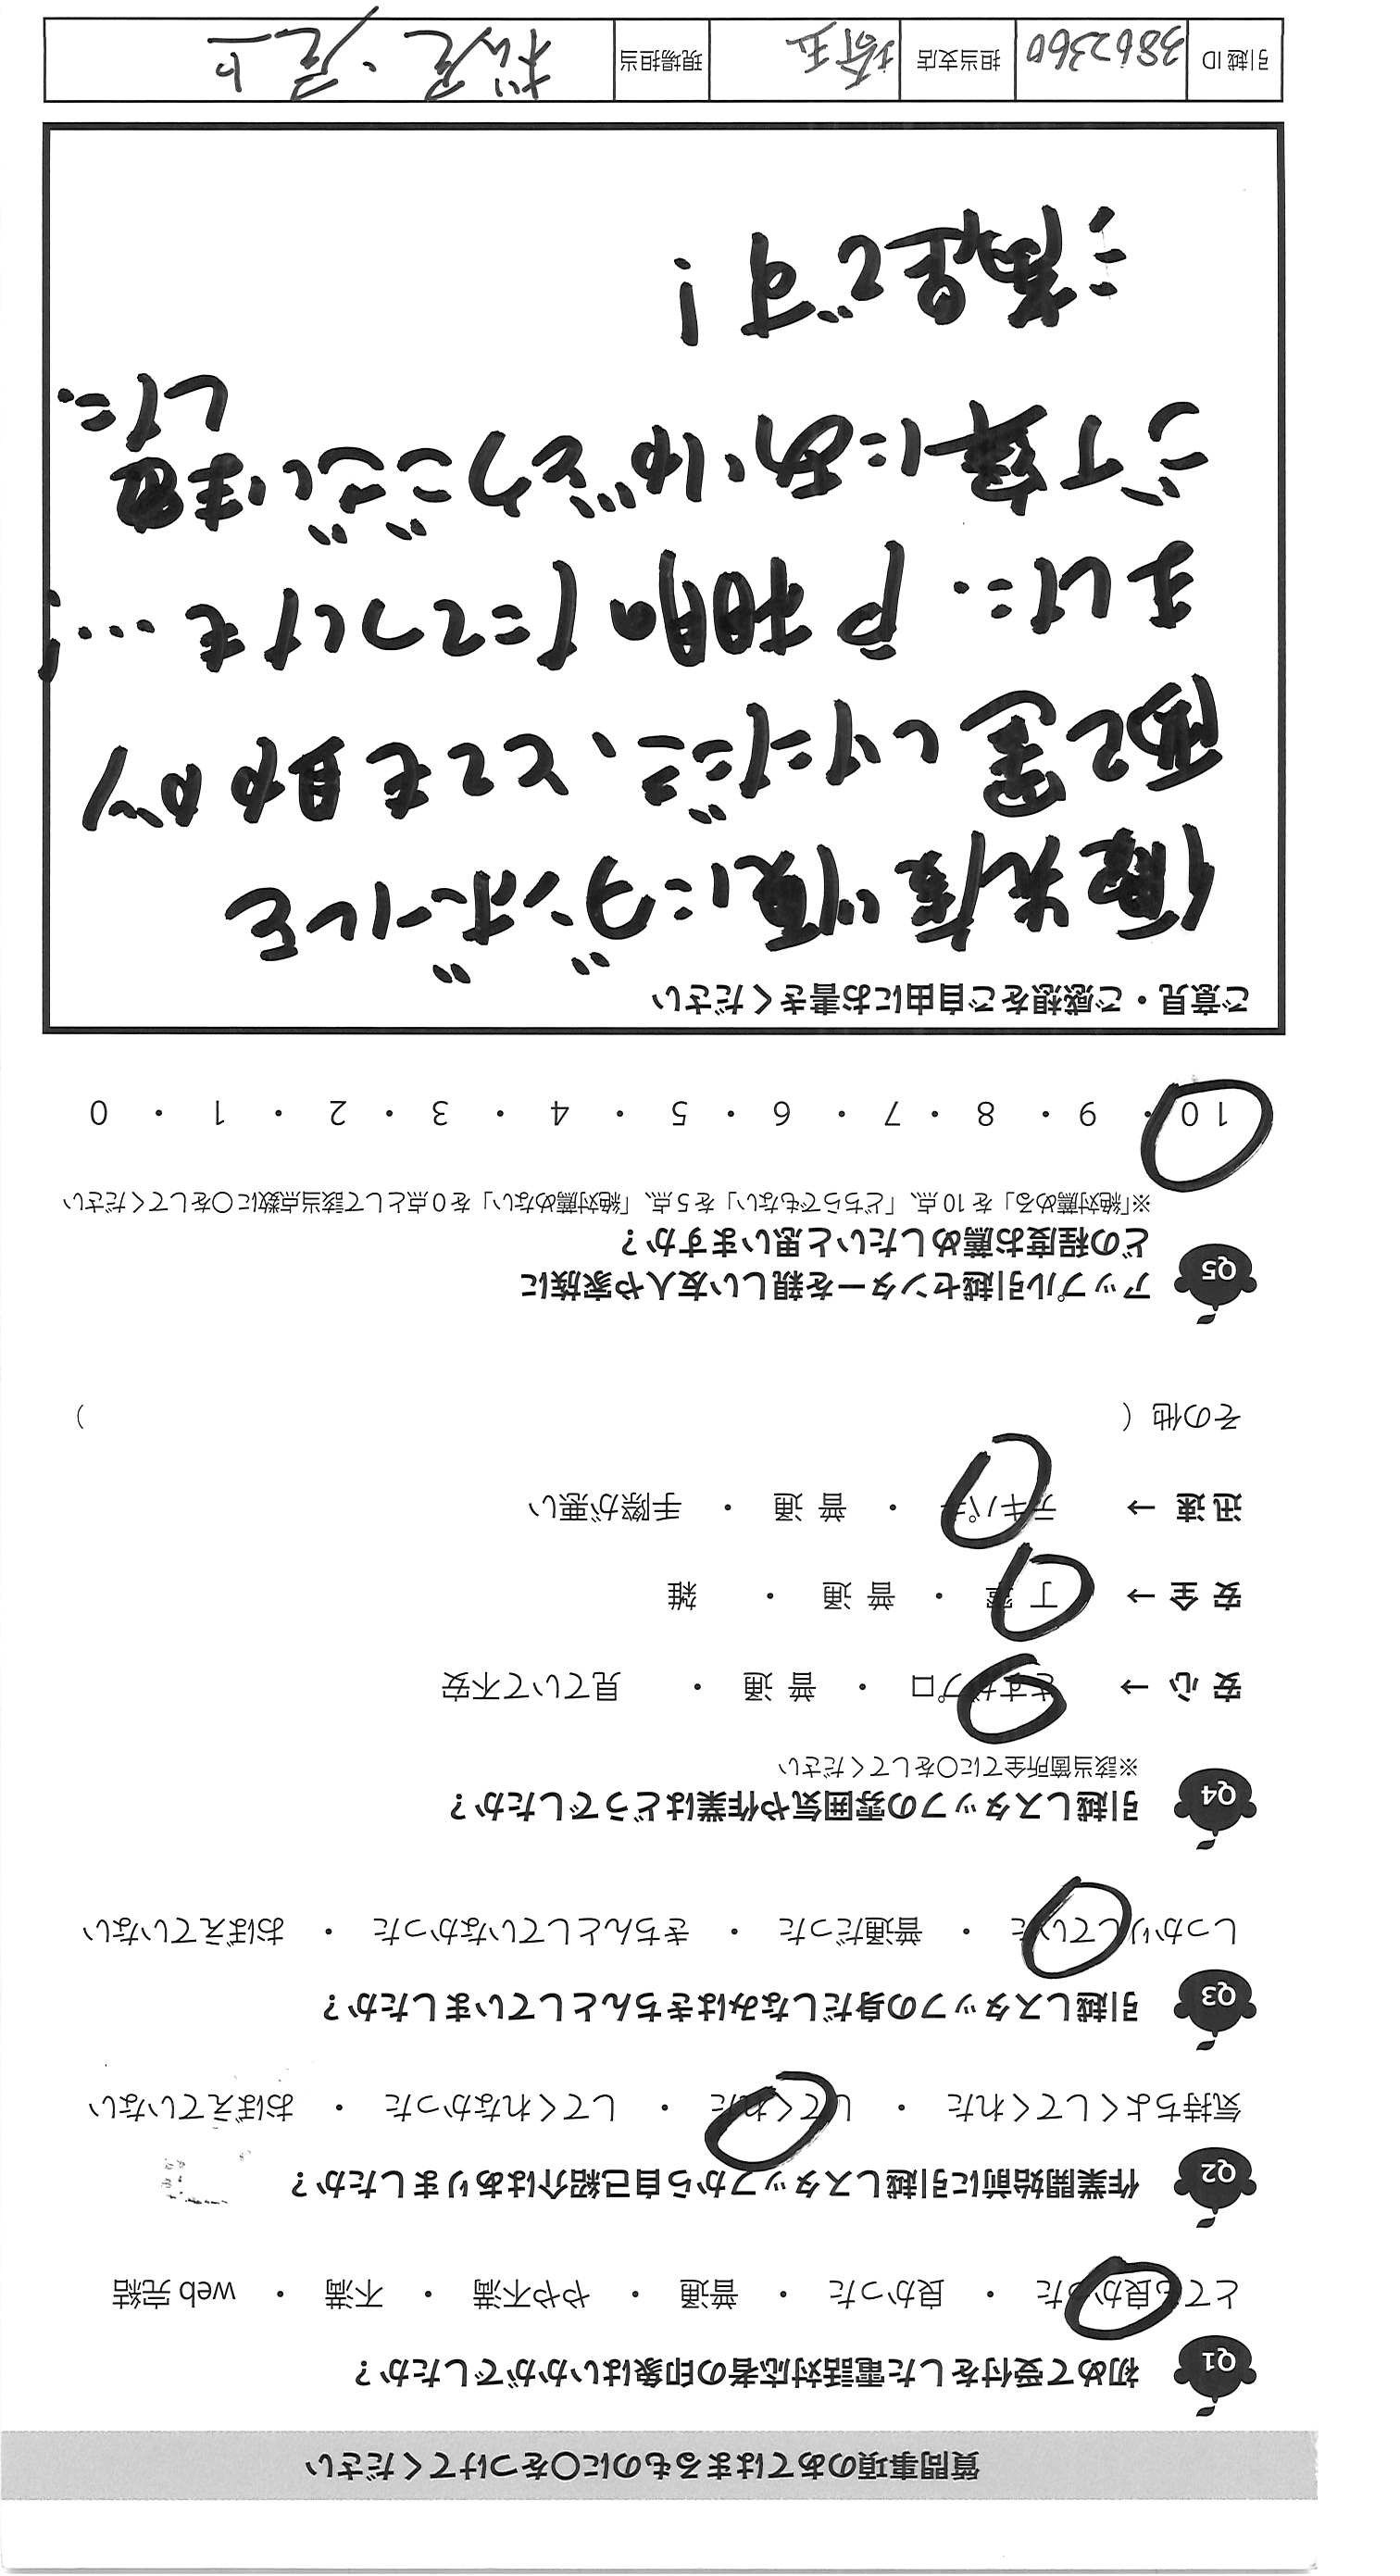 質問事項のあてはまるものに○をつけてください
Q1 初めて受付をした電話対応者の印象はいかがでしたか？
とても良かった ・ 良かった ・ 普通 ・ やや不満 ・ 不満 ・ web 完結
Q2 作業開始前に引越しスタッフから自己紹介はありましたか？
気持ちよくしてくれた ・ してくれた ・ してくれなかった ・ おぼえていない
Q3 引越しスタッフの身だしなみはきちんとしていましたか？
しっかりしていた ・ 普通だった ・ きちんとしていなかった ・ おぼえていない
Q4 引越しスタッフの雰囲気や作業はどうでしたか？
※該当箇所全てに○をしてください
安 心 → さすがプロ ・ 普 通 ・ 見ていて不安
安 全 → 丁 寧 ・ 普 通 ・ 雑
迅 速 → テキパキ ・ 普 通 ・ 手際が悪い
その他（ ）
Q5 アップル引越センターを親しい友人や家族に
どの程度お薦めしたいと思いますか？
※「絶対薦める」を 10 点、「どちらでもない」を 5 点、「絶対薦めない」を 0 点として該当点数に○をしてください
10 ・ 9 ・ 8 ・ 7 ・ 6 ・ 5 ・ 4 ・ 3 ・ 2 ・ 1 ・ 0
ご意見・ご感想をご自由にお書きください
優先度順にダンボールを
配置し　ただき、とても助かり
ました。戸棚のたてつけも…!
ご丁寧にありがとうございま
した。
ご満足です!
引越 ID 3862360 担当支店 埼玉 現場担当 松尾・尾上